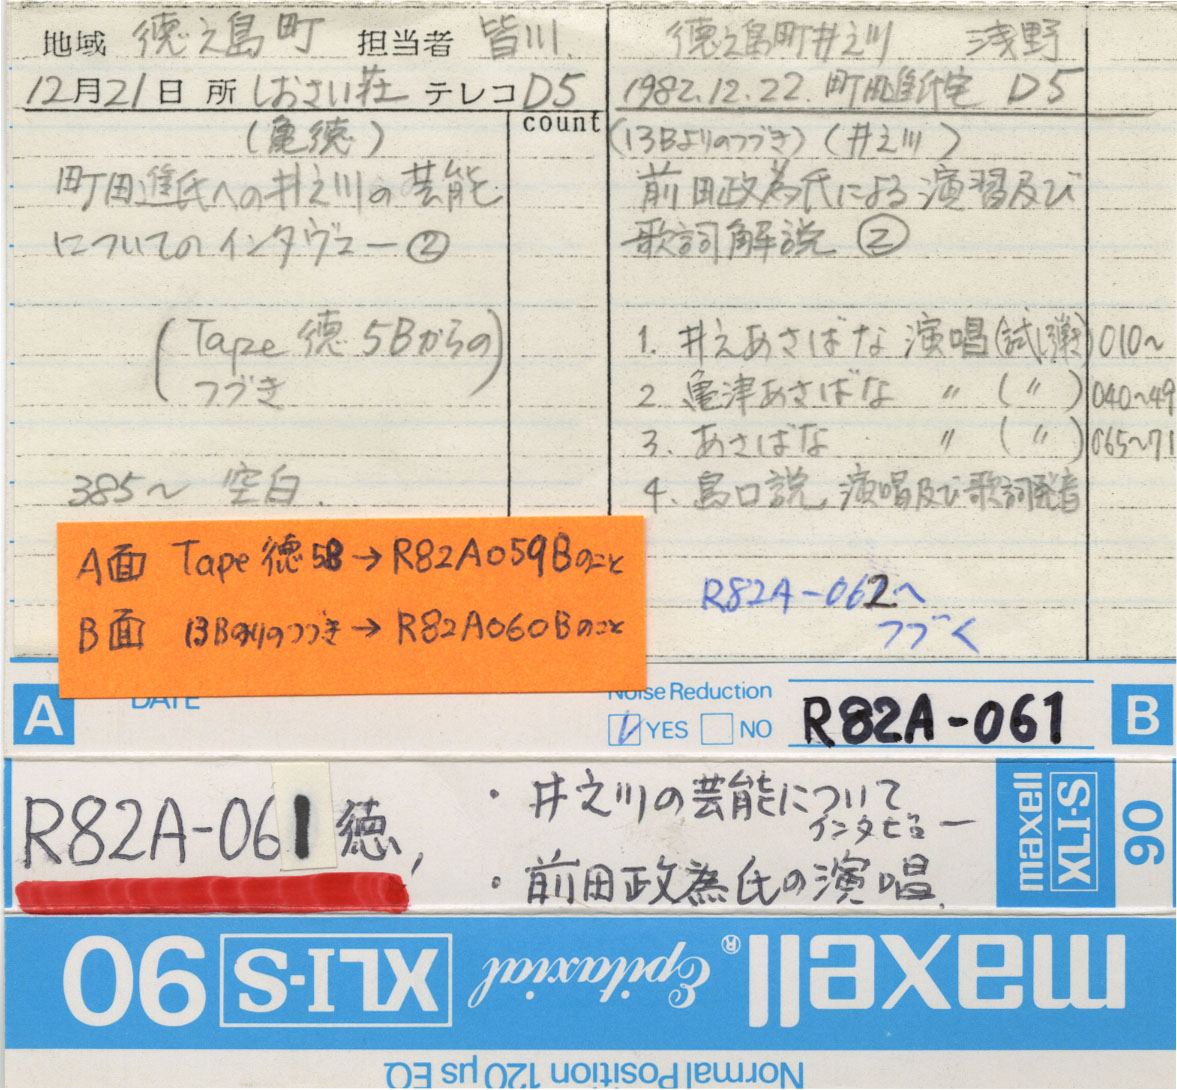 地域 徳之島町 担当者 皆川.
12月21日 所 しおさい荘 テレコ D5
count
(亀徳)
町田進氏への井之川の芸能
についてのインタヴュー②
(Tape 徳 5Bからの
つづき)
385〜 空白.
徳之島町井之川 浅野
1982.12.22. 町田進氏宅 D5
(13Bよりのつづき) (井之川)
前田政為氏による演習及び
歌詞解説 ②
1. 井之あさばな 演唱(試し弾き) 010〜
2. 亀津あさばな 〃 (〃) 040〜49
3. あさばな 〃 (〃) 065〜71
4. 島口説 演唱及び歌詞発音
R82A-062へ
つづく
A面 Tape 徳 5B→R82A059Bのこと
B面 13Bよりのつづき→R82A060Bのこと
A DATE Noise Reduction
YES NO R82A-061 B
R82A-061 徳,
・井之川の芸能について
インタビュー
・前田政為氏の演唱.
maxell XLI-S 90
maxell Epitaxial XLI-S 90
Normal Position 120 μs EQ